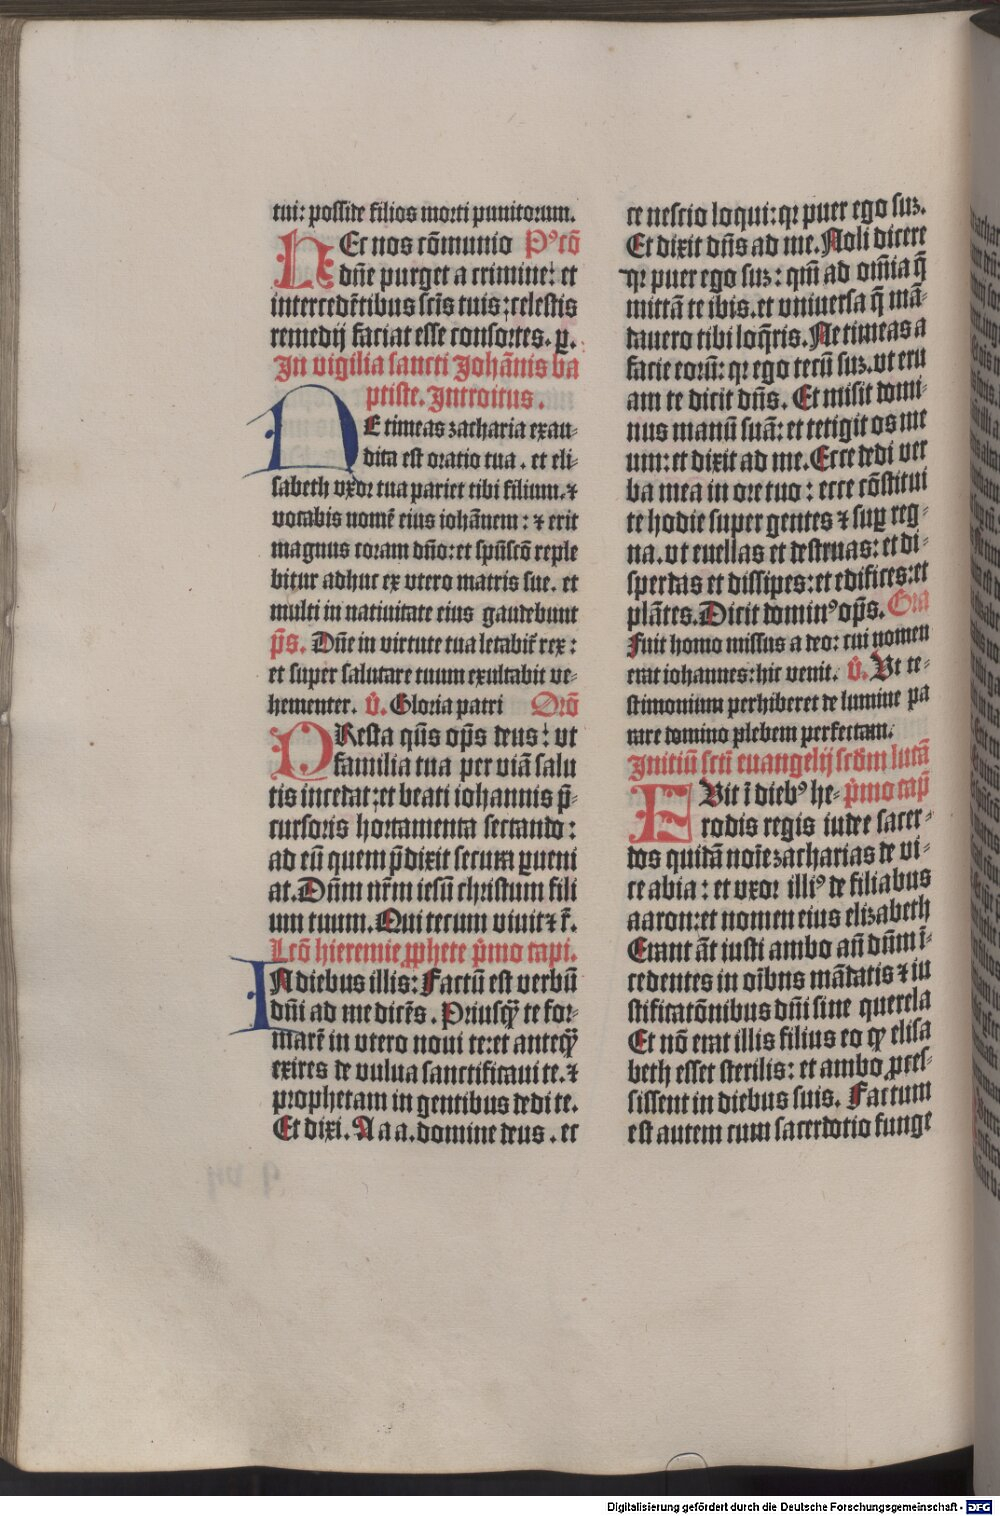 tui: posside filios morti punitorum.
HEc nos cōmunio P'cō
dn̄e purget a crimine: et
intercedētibus scīs tuis: celestis
remedij faciat esse consortes. ꝑ.
In vigilia sancti Johānis ba
ptiste. Introitus.
NE timeas zacharia exau-
dita est oratio tua. et eli-
sabeth vxor tua pariet tibi filium. ⁊
vocabis nomē eius iohānem: ⁊ erit
magnus coram dn̄o: et spūscō reple
bitur adhuc ex vtero matris sue. et
multi in natiuitate eius gaudebunt
pš. Dn̄e in virtute tua letabit̄ rex:
et super salutare tuum exultabit ve-
hementer. v̄. Gloria patri Orō
PResta qs̄ op̄s deus: vt
familia tua per viā salu
tis incedat: et beati iohannis p̄-
cursoris hortamenta sectando:
ad eū quem p̄dixit secura ꝑueni
at. Dn̄m nr̄m iesū christum fili
um tuum. Qui tecum viuit ⁊ r̄.
Lcō hieremie ꝓphete p̄mo capi.
IN diebus illis: Factū est verbū
dn̄i ad me dicēs. Priusꝙ̄ te for-
marē in vtero noui te: et anteꝙ̄
exires de vulua sanctificaui te. ⁊
prophetam in gentibus dedi te.
Et dixi. A a a. domine deus. ec
ce nescio loqui: qꝛ puer ego suꝫ.
Et dixit dn̄s ad me. Noli dicere
qꝛ puer ego suꝫ: qm̄ ad om̄ia q̄
mittā te ibis. et vniuersa q̄ mā-
dauero tibi loq̄ris. Ne timeas a
facie eorū: qꝛ ego tecū suꝫ. vt eru
am te dicit dn̄s. Et misit domi-
nus manū suā: et tetigit os me
um: et dixit ad me. Ecce dedi ver
ba mea in ore tuo: ecce cōstitui
te hodie super gentes ⁊ suꝑ reg-
na. vt euellas et destruas: et di-
sperdas et dissipes: et edifices: et
plātes. Dicit domin' op̄s. Gra
Fuit homo missus a deo: cui nomen
erat iohannes: hic venit. v̄. Vt te-
stimonium perhiberet de lumine pa
rare domino plebem perfectam.
Initiū scti euangelij scd̄m lucā
FVit ī dieb' he- p̄mo cap̄
rodis regis iudee sacer-
dos quidā noīe zacharias de vi-
ce abia: et vxor illi' de filiabus
aaron: et nomen eius elizabeth
Erant āt iusti ambo an̄ dūm ī-
cedentes in oībus mādatis ⁊ iu
stificatōnibus dn̄i sine querela
Et nō erat illis filius eo ꝙ elisa
beth esset sterilis: et ambo ꝓces-
sissent in diebus suis. Factum
est autem cum sacerdotio funge
Digitalisierung gefördert durch die Deutsche Forschungsgemeinschaft - DFG